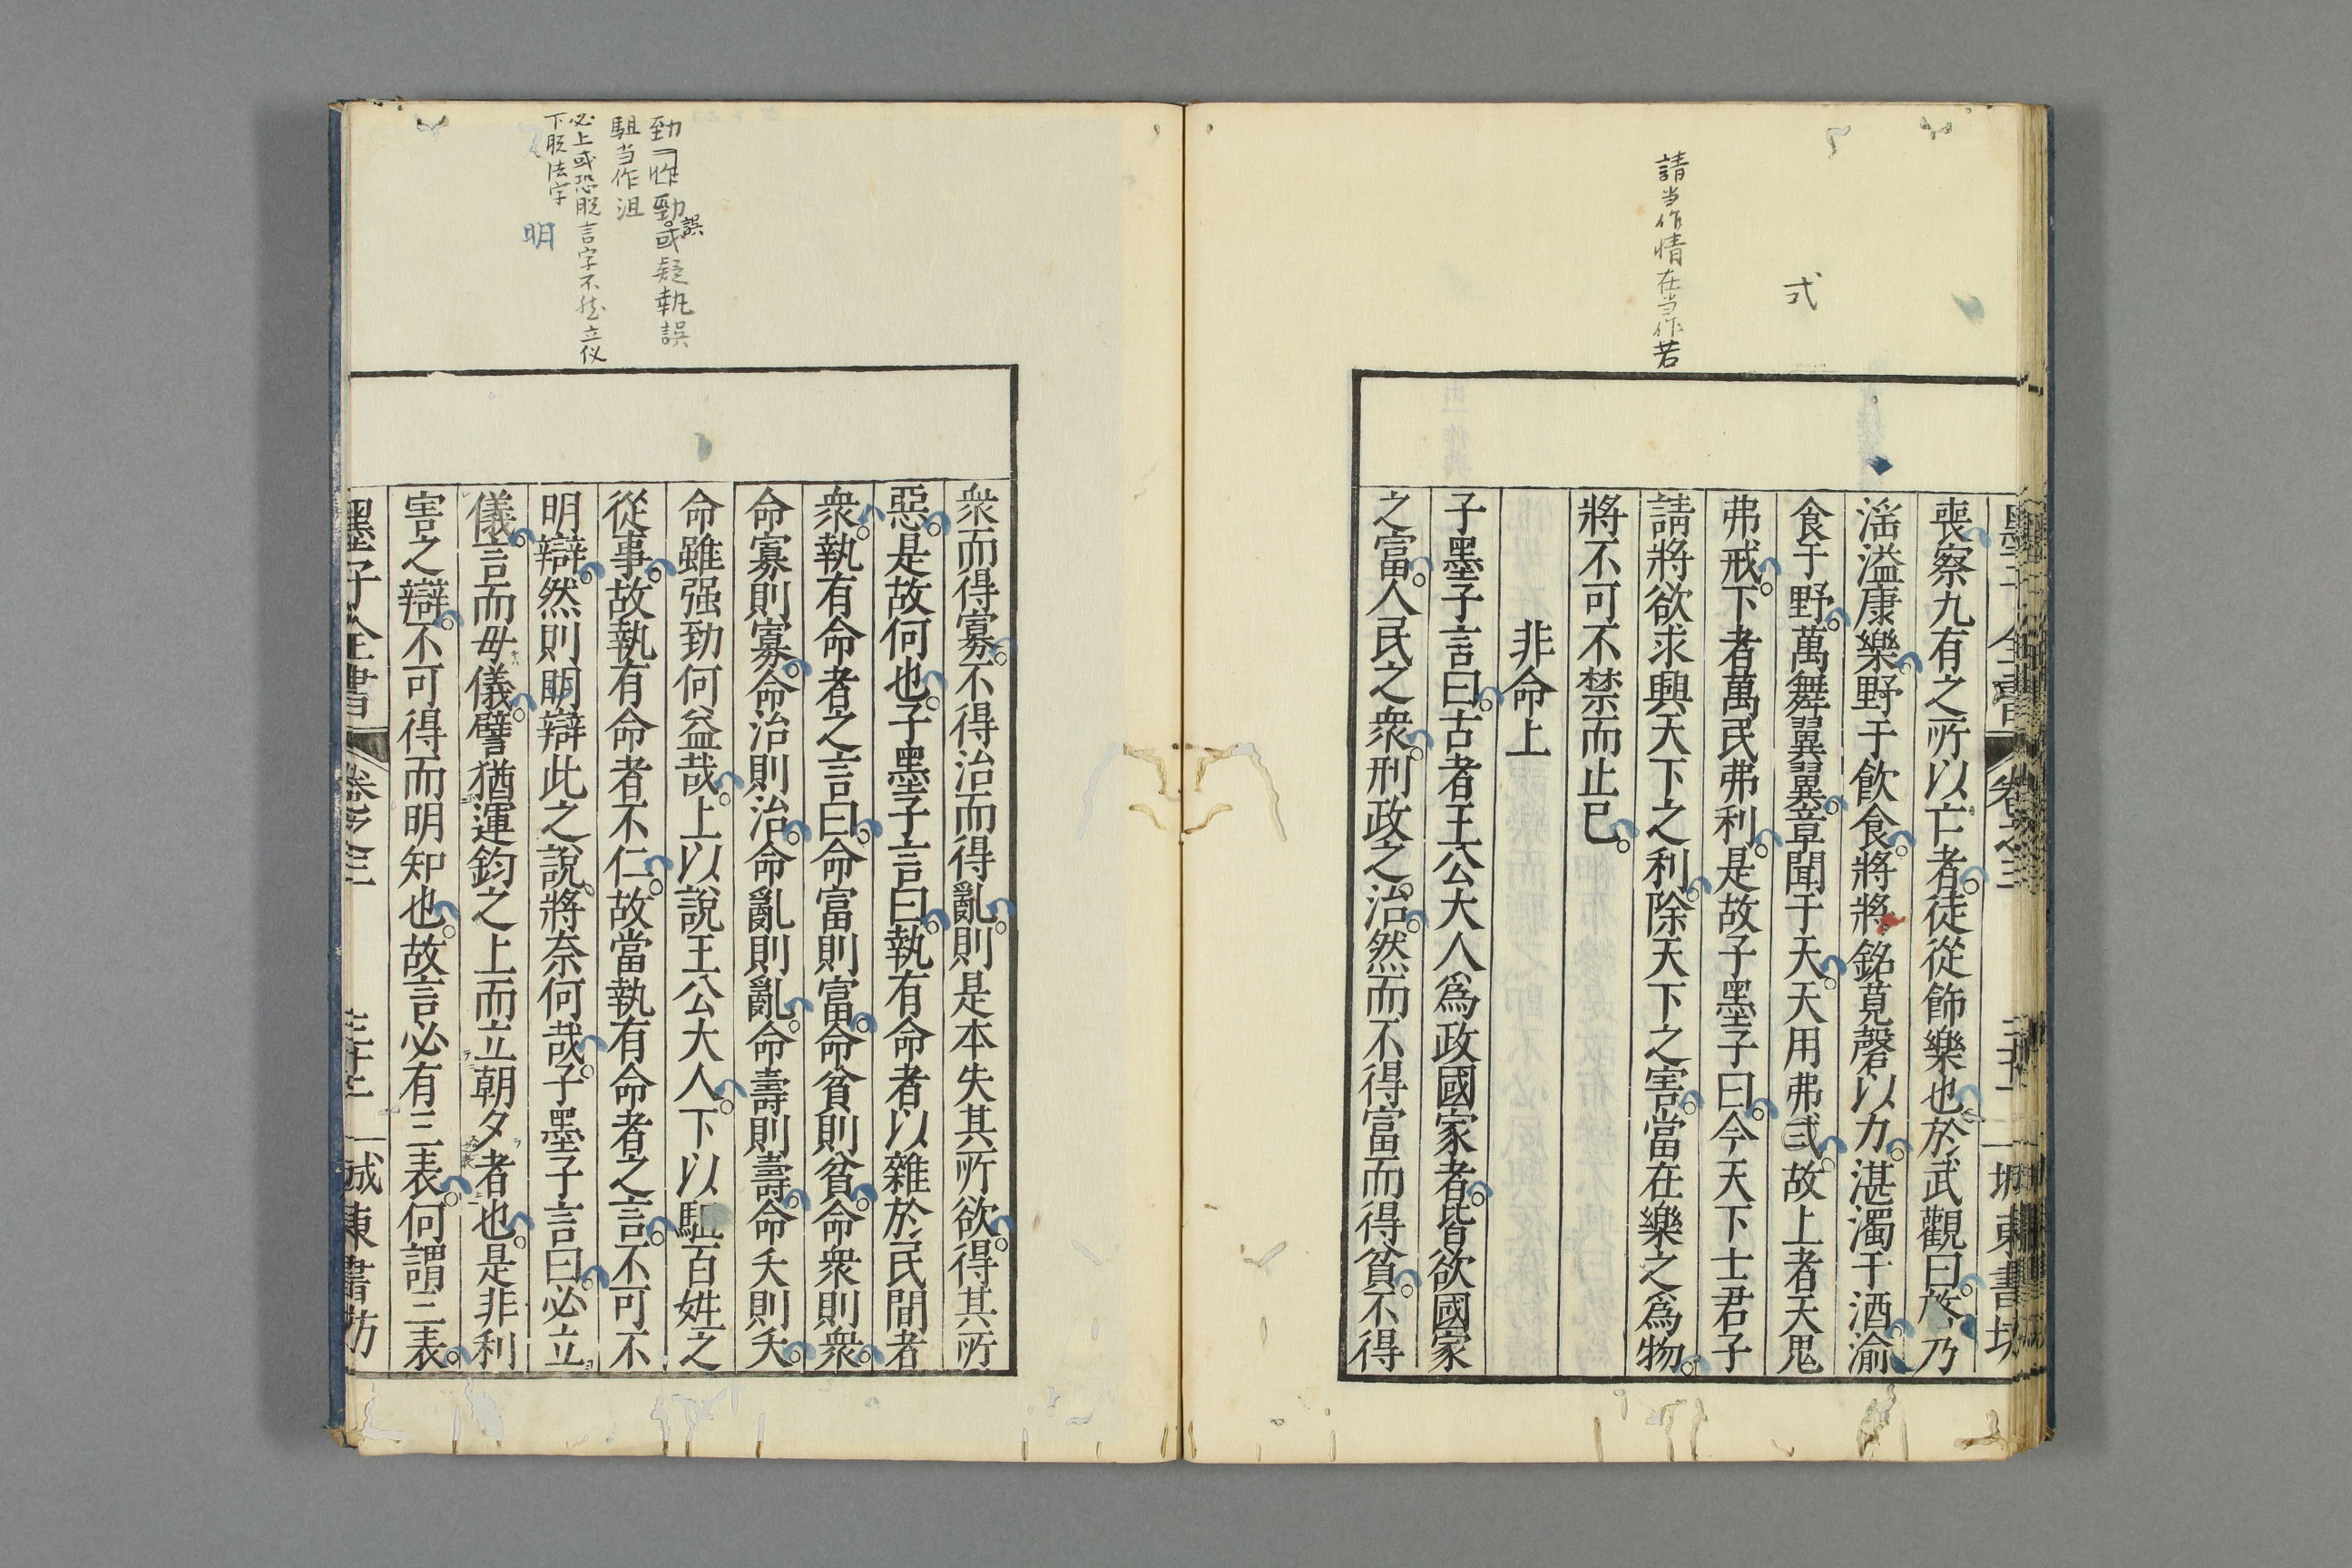 式
請当作情在当作若
喪察九有之所以亡者徒從飾樂也於武觀曰啓乃
淫溢康樂野于飲食將將銘莧磬以力湛濁于酒渝
食于野萬舞翼翼章聞于天天用弗式故上者天鬼
弗戒下者萬民弗利是故子墨子曰今天下士君子
請將欲求興天下之利除天下之害當在樂之爲物
將不可不禁而止已
非命上
子墨子言曰古者王公大人爲政國家者皆欲國家
之富人民之衆刑政之治然而不得富而得貧不得
勁一作勁誤或疑執誤
駔当作沮
必上或恐脱言字不然立仪
下脱法字
明
衆而得寡不得治而得亂則是本失其所欲得其所
惡是故何也子墨子言曰執有命者以雜於民間者
衆執有命者之言曰命富則富命貧則貧命衆則衆
命寡則寡命治則治命亂則亂命壽則壽命夭則夭
命雖强勁何益哉上以說王公大人下以駔百姓之
從事故執有命者不仁故當執有命者之言不可不
明辯然則明辯此之說將奈何哉子墨子言曰必立
儀言而毋儀譬猶運鈞之上而立朝夕者也是非利
害之辯不可得而明知也故言必有三表何謂三表
墨子全書 卷之三 三十二 城東書坊